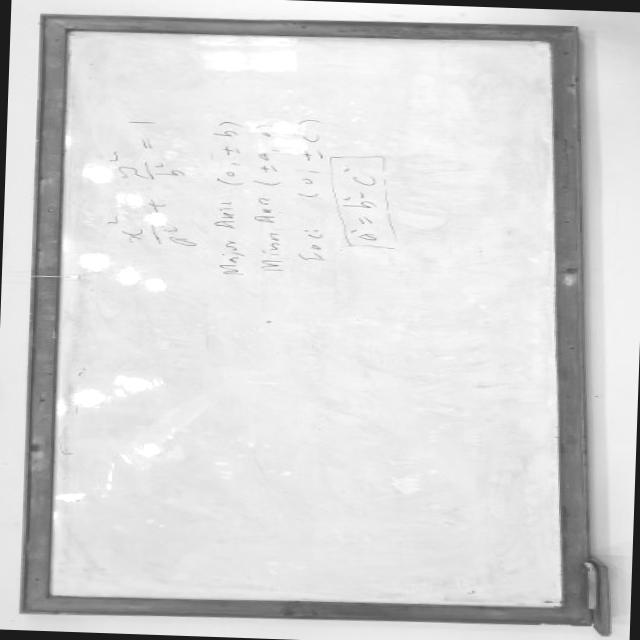 x²/a² + y²/b² = 1
Major Axis (0, ± b)
Minor Axis (± a, 0)
Foci (0, ± c)
a² = b² - c²